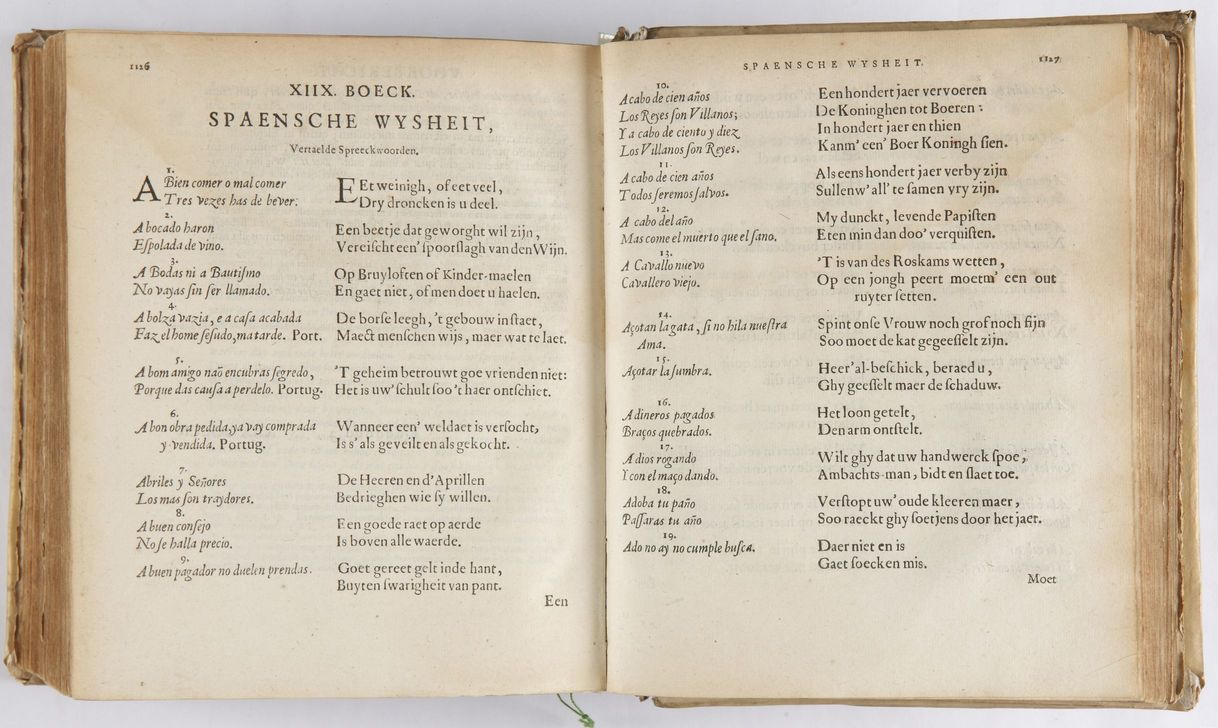 1126
XIIX. BOECK.
SPAENSCHE WYSHEIT,
Vertaelde Spreeckwoorden.
1.
A Bien comer o mal comer
Tres vezes has de bever.
EEt weinigh, of eet veel,
Dry droncken is u deel.
2.
A bocado haron
Eſpolada de vino.
Een beetje dat geworght wil zijn,
Vereiſcht een' ſpoorſlagh van den Wijn.
3.
A Bodas ni a Bautiſmo
No vayas ſin ſer llamado.
Op Bruyloften of Kinder-maelen
En gaet niet, of men doet u haelen.
4.
A bolza vazia, e a caſa acabada
Faz el home ſeſudo, ma tarde. Port.
De borſe leegh, 't gebouw in ſtaet,
Maeckt menſchen wijs, maer wat te laet.
5.
A bom amigo naõ encubras ſegredo,
Porque das cauſa a perdelo. Portug.
'T geheim betrouwt goe vrienden niet:
Het is uw' ſchult ſoo 't haer ontſchiet.
6.
A bon obra pedida, ya vay comprada
y vendida. Portug.
Wanneer een' weldaet is verſocht,
Is s' als geveilt en als gekocht.
7.
Abriles y Señores
Los mas ſon traydores.
De Heeren en d'Aprillen
Bedrieghen wie ſy willen.
8.
A buen conſejo
No ſe halla precio.
Een goede raet op aerde
Is boven alle waerde.
9.
A buen pagador no duelen prendas.
Goet gereet gelt inde hant,
Buyten ſwarigheit van pant.
Een
SPAENSCHE WYSHEIT.
1127
10.
A cabo de cien años
Los Reyes ſon Villanos;
Y a cabo de ciento y diez
Los Villanos ſon Reyes.
Een hondert jaer vervoeren
De Koninghen tot Boeren:
In hondert jaer en thien
Kanm' een' Boer Koningh ſien.
11.
A cabo de cien años
Todos ſeremos ſalvos.
Als eens hondert jaer verby zijn
Sullenw' all' te ſamen vry zijn.
12.
A cabo del año
Mas come el muerto que el ſano.
My dunckt, levende Papiſten
Eten min dan doo' verquiſten.
13.
A Cavallo nuevo
Cavallero viejo.
'T is van des Roskams wetten,
Op een jongh peert moetm' een out
ruyter ſetten.
14.
Açotan la gata, ſi no hila nueſtra
Ama.
Spint onſe Vrouw noch grof noch fijn
Soo moet de kat gegeeſſelt zijn.
15.
Açotar la ſumbra.
Heer' al-beſchick, beraed u,
Ghy geeſſelt maer de ſchaduw.
16.
A dineros pagados
Braços quebrados.
Het loon getelt,
Den arm ontſtelt.
17.
A dios rogando
Y con el maço dando.
Wilt ghy dat uw handwerck ſpoe,
Ambachts-man, bidt en ſlaet toe.
18.
Adoba tu paño
Paſſaras tu año
Verſtopt uw' oude kleeren maer,
Soo raeckt ghy ſoetjens door het jaer.
19.
Ado no ay no cumple buſca.
Daer niet en is
Gaet ſoecken mis.
Moet